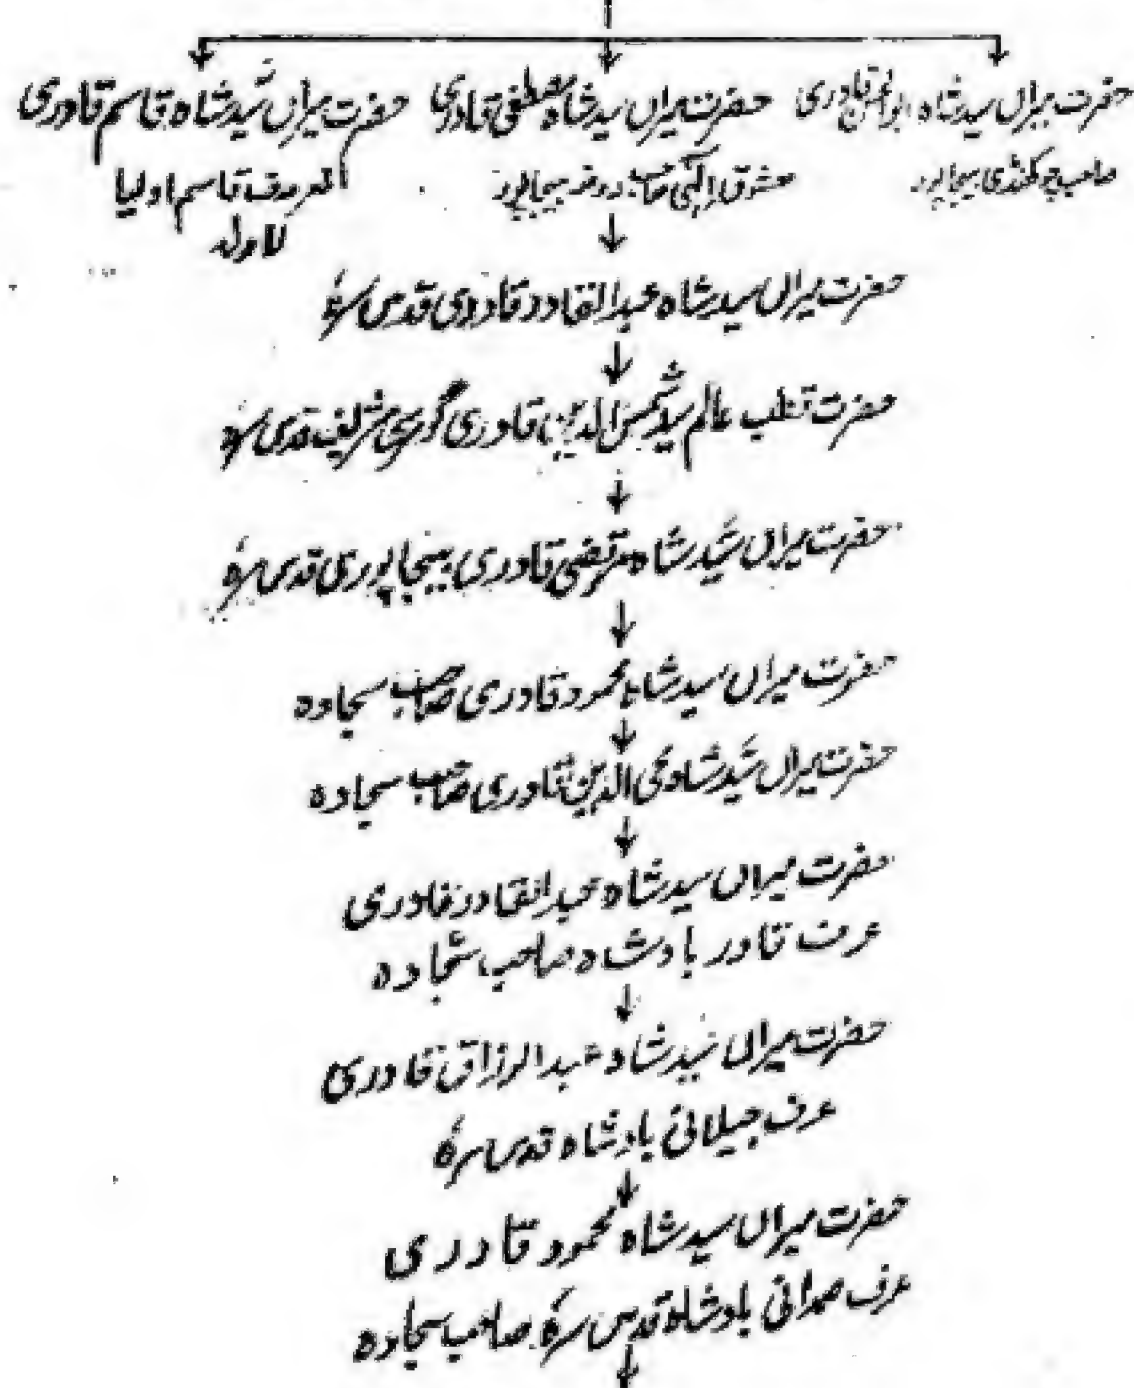 حضرت میراں سید شاہ ابوالحسن قادری
صاحب چوکھنڈی بیجاپور
حضرت میراں سید شاہ مصطفی قادری
معشوق الٰہی صاحب روضہ بیجاپور
حضرت میراں سید شاہ قاسم قادری
المعروف قاسم اولیا
لاولد
حضرت میراں سید شاہ عبدالقادر قادری قدس سرہٗ
حضرت قطب عالم سید شمس الدین قادری گوگی شریف قدس سرہٗ
حضرت میراں سید شاہ مرتضی قادری بیجاپوری قدس سرہٗ
حضرت میراں سید شاہ محمود قادری صاحب سجادہ
حضرت میراں سید شاہ محی الدین قادری صاحب سجادہ
حضرت میراں سید شاہ عبدالقادر قادری
عرف قادر بادشاہ صاحب سجادہ
حضرت میراں سید شاہ عبدالرزاق قادری
عرف جیلانی بادشاہ قدس سرہٗ
حضرت میراں سید شاہ محمود قادری
عرف صمدانی بادشاہ قدس سرہٗ صاحب سجادہ